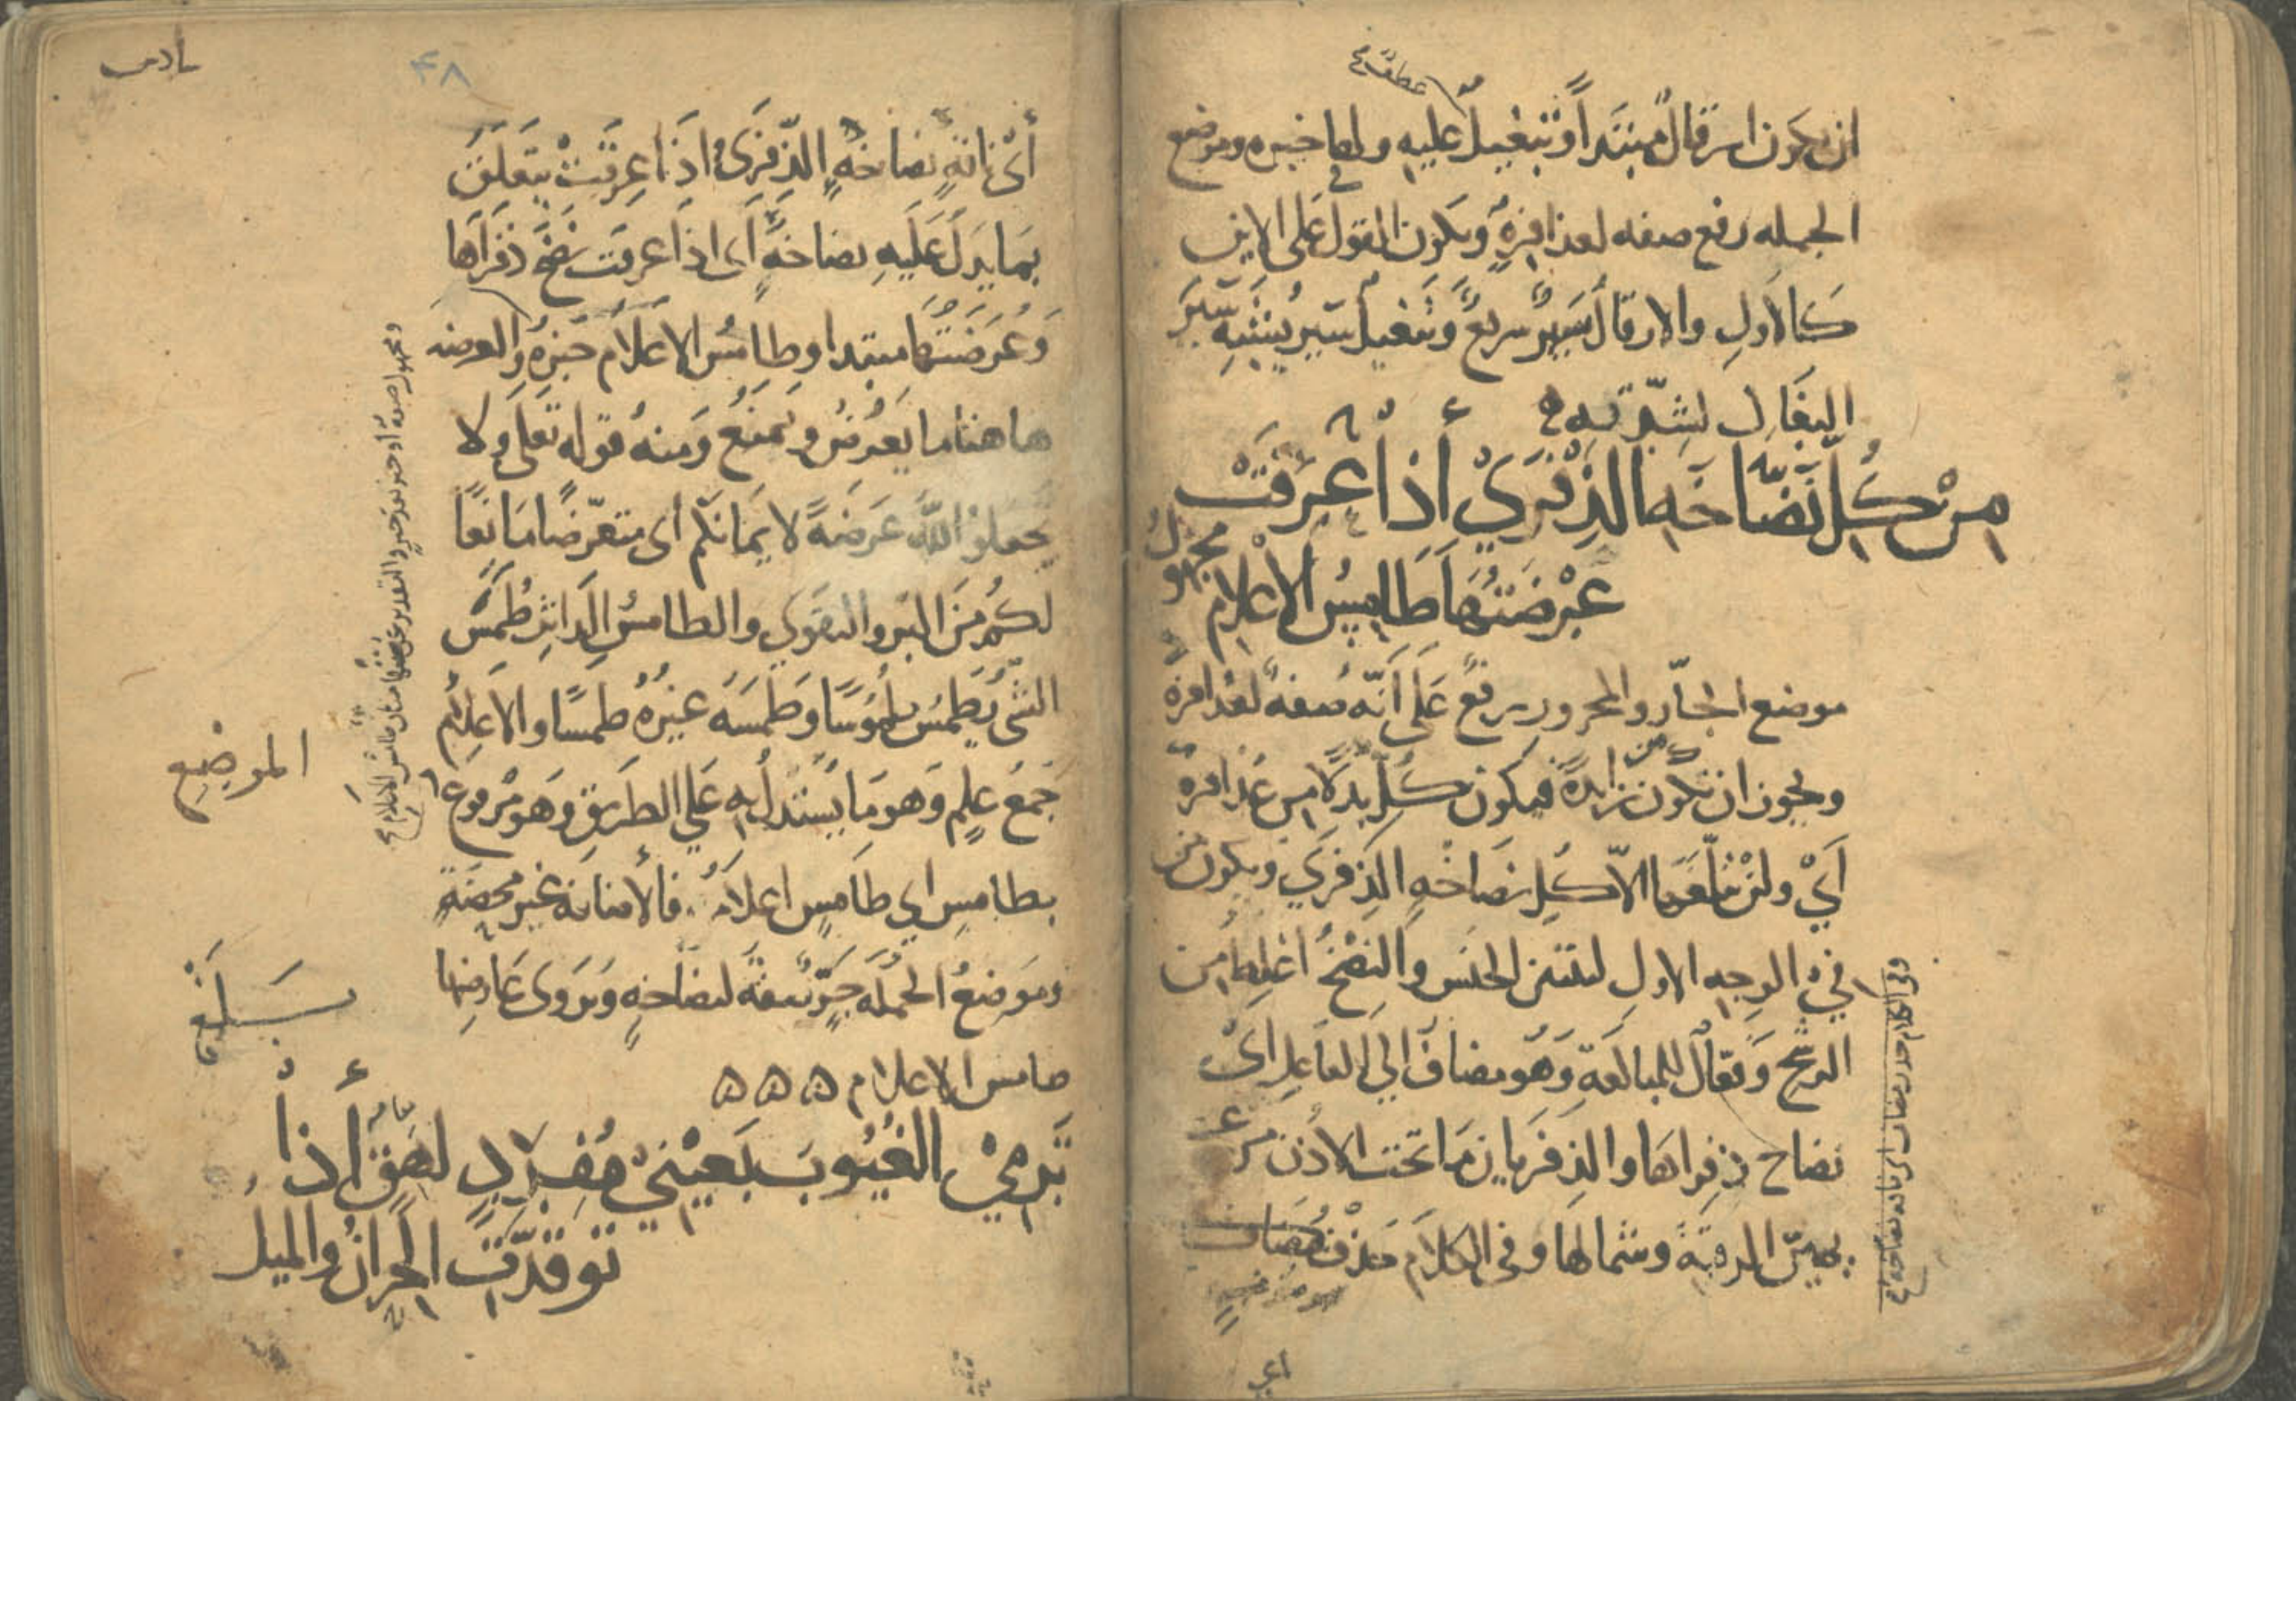 عطف
ان يكون ارقال مبتدا وتبغيل عليه ولها خبره وموضع
الجمله رفع صفه لعذافرة ويكون القول على الاين
كالاول والارقال سير سريع وتبغيل سير يشبه سير
البغال لشدته
من كل نضاخه الذفري أذا عرقت
عرضتها طامس الأعلام مجهول
موضع الجار والمجرور رفع على انه صفة لعذافرة
ويجوز ان تكون من زايدة فيكون كل بدلا من عذافرة
أي ولن يبلغها الا كل نضاخة الذفري ويكون من
في الوجه الاول لتبين الجنس والنضخ اغلظ من
الرشح وفعال للمبالغة وهو مضاف الي الفاعل اى
نضاخ ذفراها والذفريان ما تحت الاذن من عن
يمين الرقبة وشمالها وفي الكلام حذف مضاف
اى
٤٨
أي ناقة نضاخة الذفري واذا عرقت يتعلق
بما يدل عليه نضاخة اى اذا عرقت نضخ ذفراها
وعرضتها مبتدا وطامس الاعلام خبره والعرضه
هاهنا ما يعرض ويمنع ومنه قوله تعلى ولا
تجعلوا الله عرضة لايمانكم اى متعرضا مانعا
لكم من البر والتقوى والطامس الداثر طمس
الشى يطمس طموسا وطمسه غيره طمسا والاعلام
جمع علم وهو ما يستدل به على الطريق وهو مرفوع
بطامس اي طامس اعلامه فالاضافة غير محضة
وموضع الجمله جر صفة لنضاخه ويروى عارضها
طامس الاعلام ۵ ۵ ۵
ترمي الغيوب بعيني مفرد لهق أذا
توقدت الحزان والميل
الموضع
بلغ